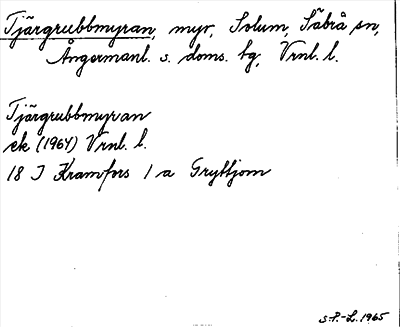 Tjärgrubbmyran, myr, Solum, Säbrå sn,
Ångermanl. s. doms. bg, Vrnl. l.
Tjärgrubbmyran
ek (1964) Vrnl. l.
18 I Kramfors 1 a Gryttjom
S.P.-L. 1965